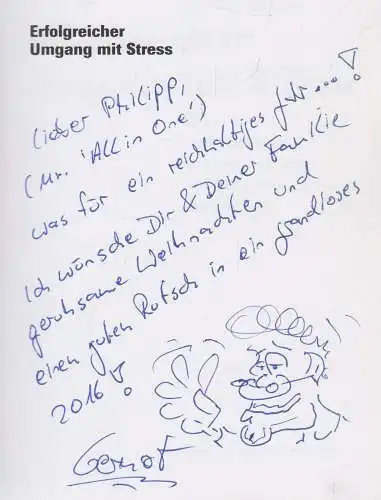 Erfolgreicher
Umgang mit Stress
Lieber Philipp,
(Mr. 'All in One')
was für ein reichhaltiges Jahr...!
Ich wünsche Dir & Deiner Familie
geruhsame Weihnachten und
einen guten Rutsch in ein grandioses
2016!
Gernot